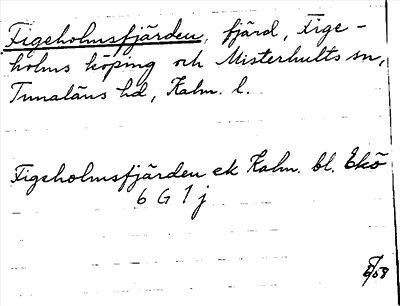 Figeholmsfjärden, fjärd, Fige-
holms köping och Misterhults sn,
Tunaläns hd, Kalm. l.
Figeholmsfjärden ek Kalm. bl. Ekö
6 G 1 j